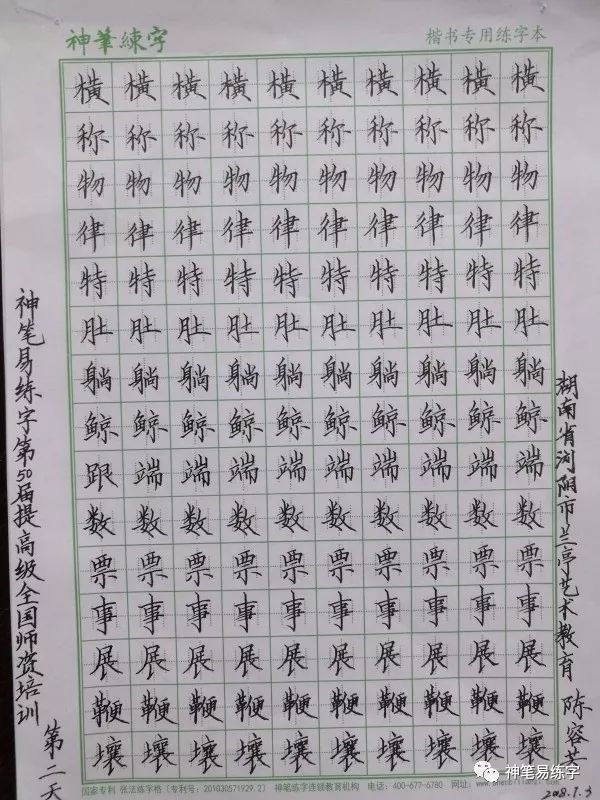 神筆練字
楷书专用练字本
横横横横横横横横横横
称称称称称称称称称称
物物物物物物物物物物
律律律律律律律律律律
特特特特特特特特特特
肚肚肚肚肚肚肚肚肚肚
躺躺躺躺躺躺躺躺躺躺
鲸鲸鲸鲸鲸鲸鲸鲸鲸鲸
跟端端端端端端端端端
数数数数数数数数数数
票票票票票票票票票票
事事事事事事事事事事
展展展展展展展展展展
鞭鞭鞭鞭鞭鞭鞭鞭鞭鞭
壤壤壤壤壤壤壤壤壤壤
神笔易练字第50届提高级全国师资培训
第二天
湖南省浏阳市兰亭艺术教育 陈容
2018.7.3
国家专利 张法练字格（专利号：201030571929.2） 神笔练字连锁教育机构 电话：400-677-6780 网址：
神笔易练字